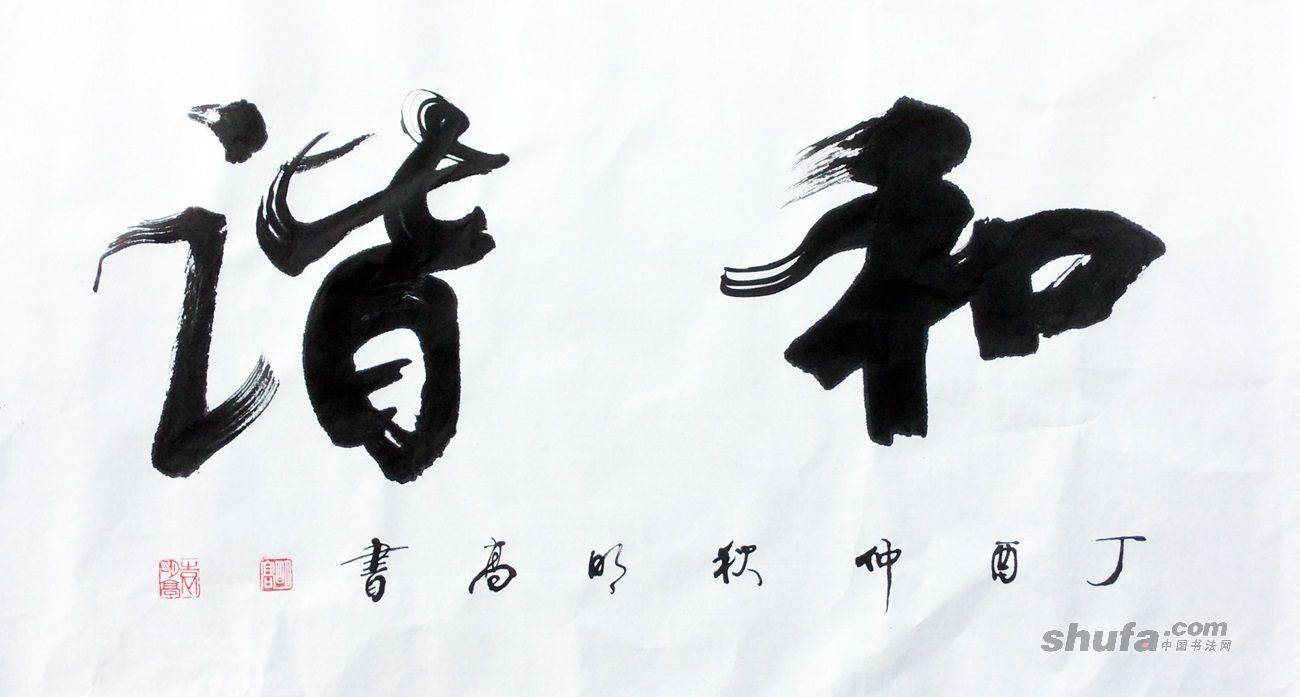 和谐
丁酉仲秋明高書
shufa.com
中国书法网